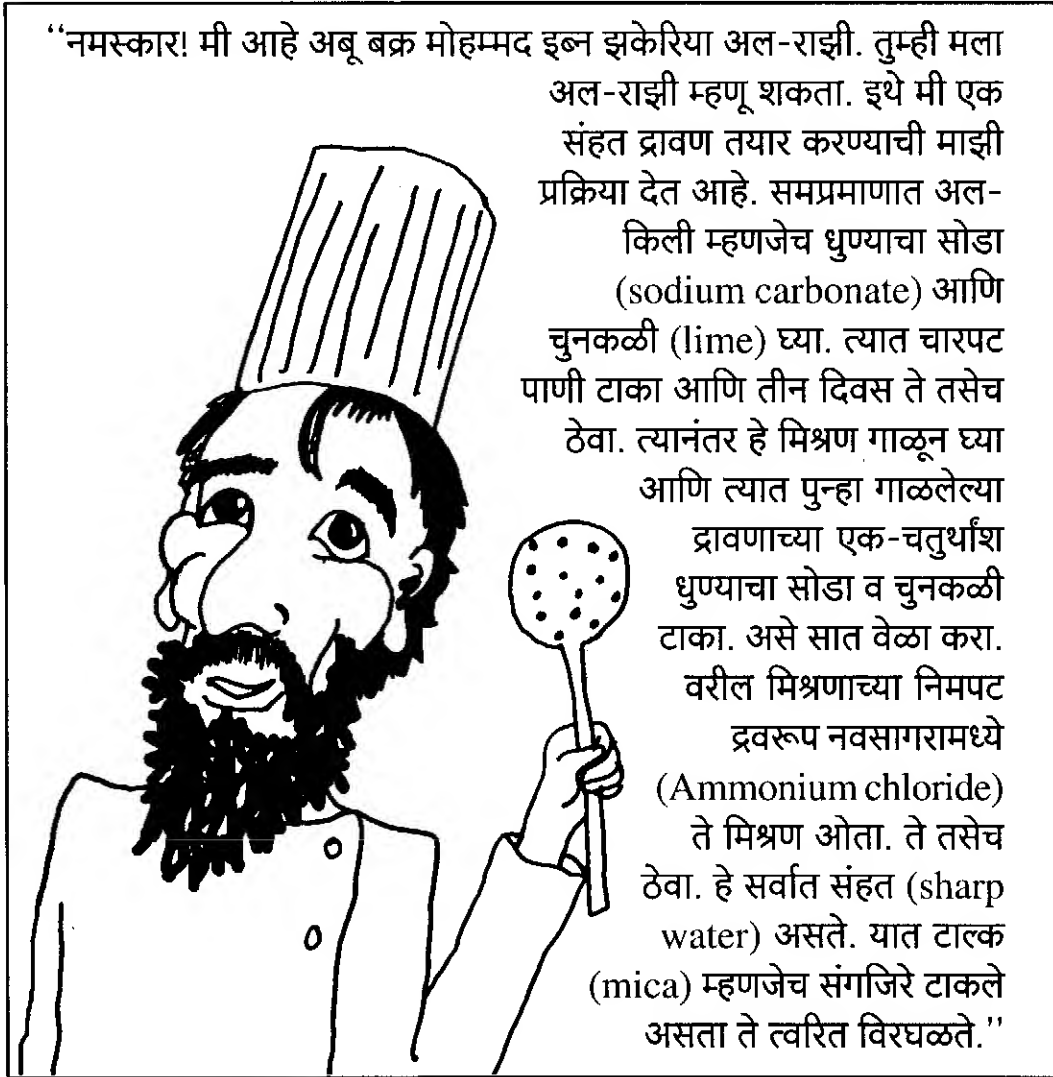 ‘‘नमस्कार! मी आहे अबू बक्र मोहम्मद इब्न झकेरिया अल-राझी. तुम्ही मला
अल-राझी म्हणू शकता. इथे मी एक
संहत द्रावण तयार करण्याची माझी
प्रक्रिया देत आहे. समप्रमाणात अल-
किली म्हणजेच धुण्याचा सोडा
(sodium carbonate) आणि
चुनकळी (lime) घ्या. त्यात चारपट
पाणी टाका आणि तीन दिवस ते तसेच
ठेवा. त्यानंतर हे मिश्रण गाळून घ्या
आणि त्यात पुन्हा गाळलेल्या
द्रावणाच्या एक-चतुर्थांश
धुण्याचा सोडा व चुनकळी
टाका. असे सात वेळा करा.
वरील मिश्रणाच्या निमपट
द्रवरूप नवसागरामध्ये
(Ammonium chloride)
ते मिश्रण ओता. ते तसेच
ठेवा. हे सर्वात संहत (sharp
water) असते. यात टाल्क
(mica) म्हणजेच संगजिरे टाकले
असता ते त्वरित विरघळते.’’